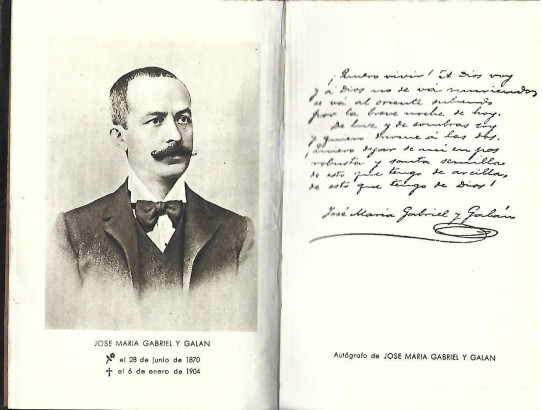 JOSE MARIA GABRIEL Y GALAN
el 28 de junio de 1870
✝ el 6 de enero de 1904
¡Quiero vivir! A Dios voy
y á Dios no se vá muriendo,
se vá al oriente subiendo
por la breve noche de hoy.
De luz y de sombras soy
y quiero darme á las dos.
¡Quiero dejar de mí en pos
robusta y santa semilla
de esto que tengo de arcilla,
de esto que tengo de Dios!
José María Gabriel y Galán
Autógrafo de JOSE MARIA GABRIEL Y GALAN